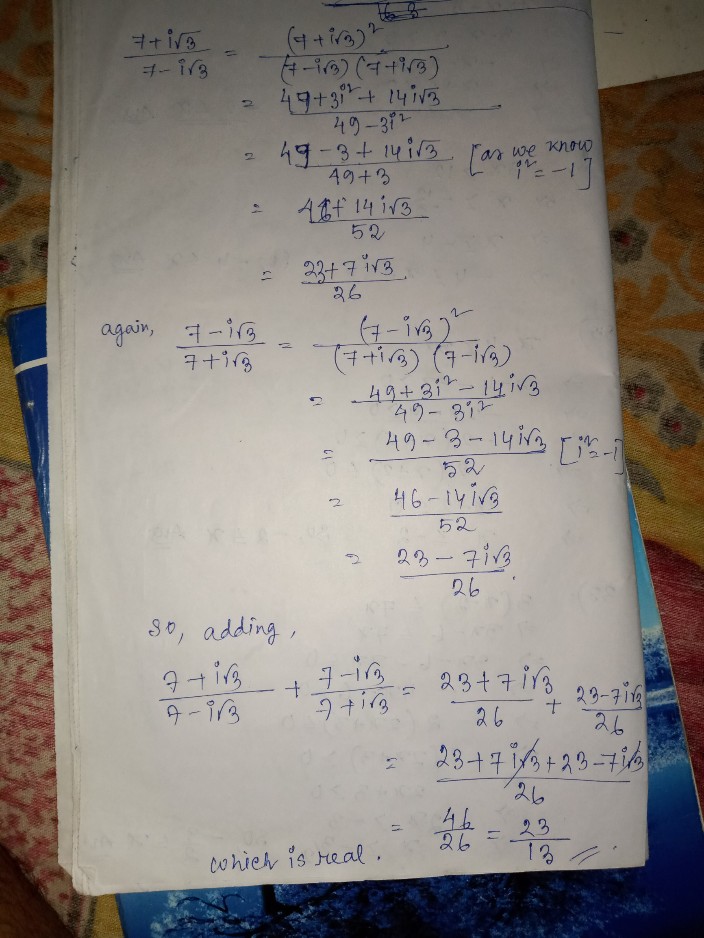 63
(7+i√3)/(7-i√3) = (7+i√3)²/((7-i√3)(7+i√3))
= (49+3i²+14i√3)/(49-3i²)
= (49-3+14i√3)/(49+3) [as we know i²=-1]
= (46+14i√3)/52
= (23+7i√3)/26
again, (7-i√3)/(7+i√3) = (7-i√3)²/((7+i√3)(7-i√3))
= (49+3i²-14i√3)/(49-3i²)
= (49-3-14i√3)/52 [i²=-1]
= (46-14i√3)/52
= (23-7i√3)/26.
so, adding,
(7+i√3)/(7-i√3) + (7-i√3)/(7+i√3) = (23+7i√3)/26 + (23-7i√3)/26
= (23+7i√3+23-7i√3)/26
= 46/26 = 23/13
which is real.